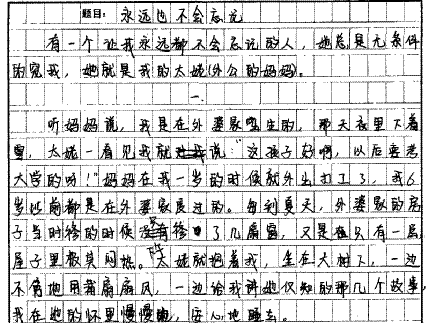 题目：永远也不会忘记
有一个让我永远都不会忘记的人，她总是无条件
的宠我，她就是我的太姥(外公的妈妈)。
一
听妈妈说，我是在外婆家出生的，那天夜里下着
雪，太姥一看见我就说"这孩子好啊，以后要考
大学的呀！"妈妈在我一岁的时候就外出打工了，我6
岁以前都是在外婆家度过的。每到夏天，外婆家的房
子当时修的时候只修了几扇窗，又是只有一层，
屋子里极其闷热。太姥就抱着我，坐在大树下，一边
不停地用蒲扇扇风，一边给我讲她仅知的那几个故事，
我在她的怀里慢慢地，安心地睡去。